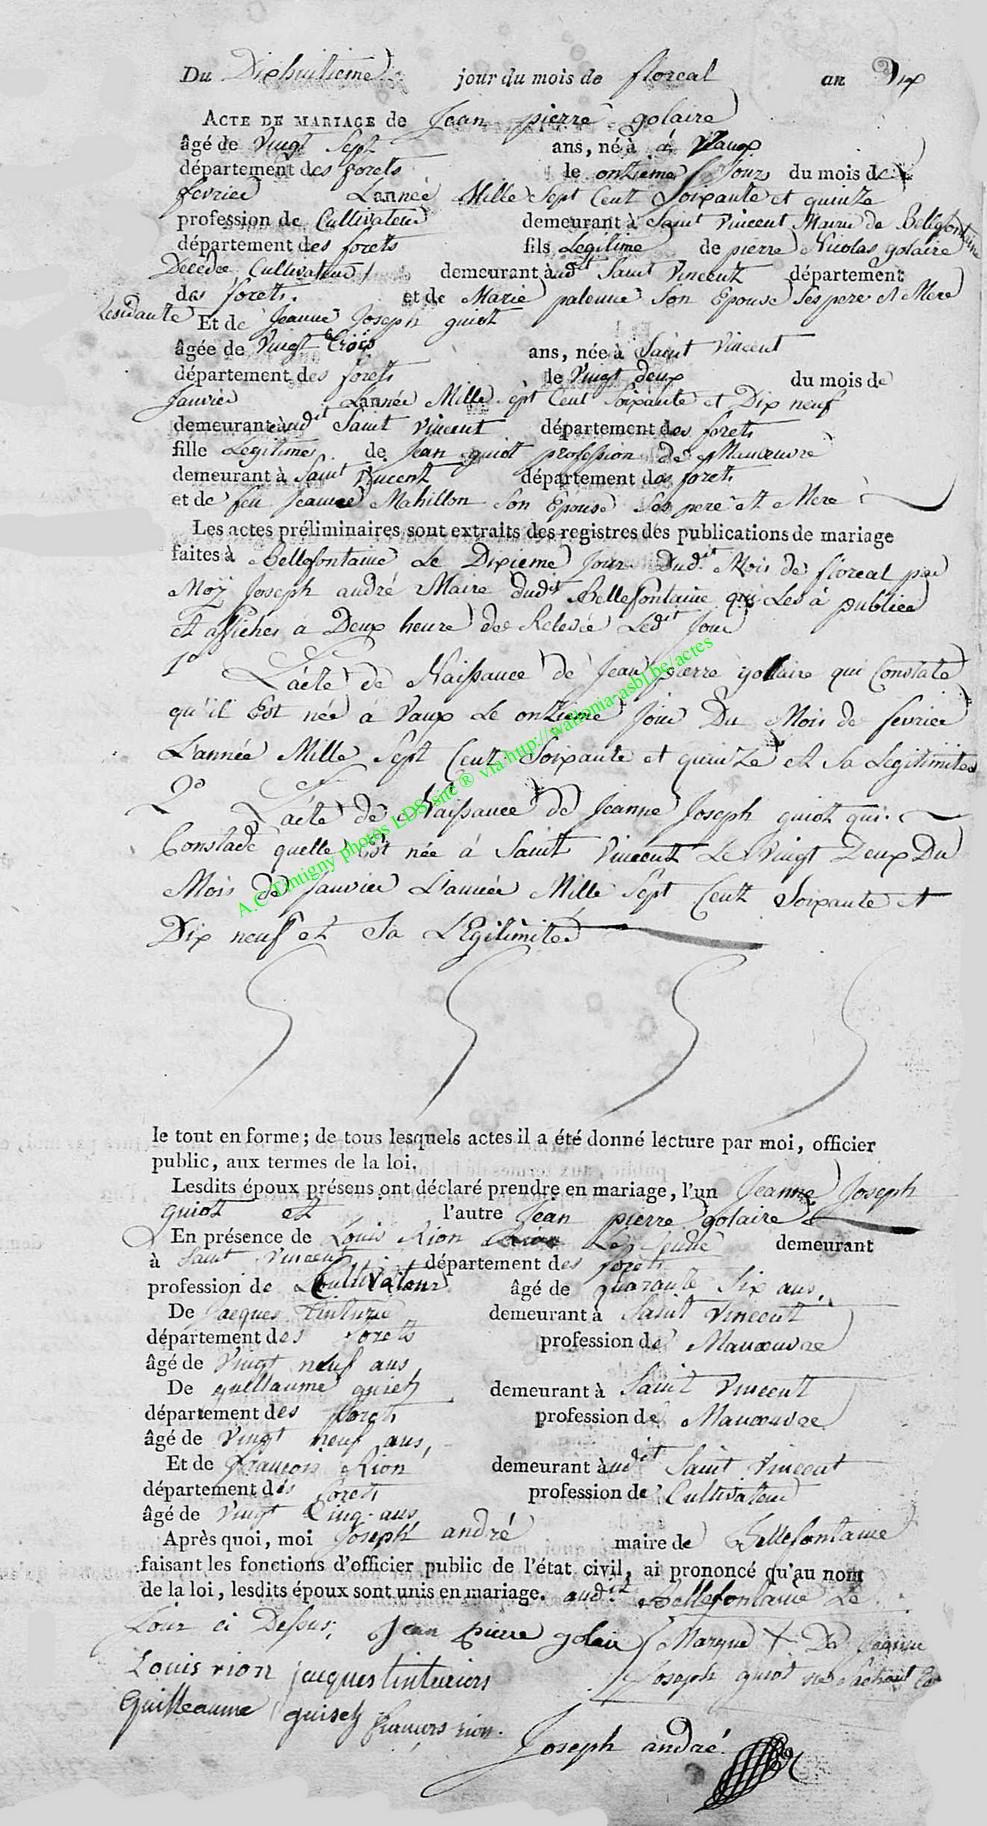 Du Dixhuitieme jour du mois de floreal an Dix
ACTE DE MARIAGE de Jean pierre golaire
âgé de Vingt Sept ans, né à Vaux
département des forets le onzieme Jour du mois de
fevrier Lannée Mille Sept Cent Soixante et quinze
profession de Cultivateur demeurant à Saint Vincent Mairie de Bellefontaine
département des forets fils Legitime de pierre Nicolas golaire
Decédée Cultivateur demeurant audit Saint Vincent département
des forets. et de Marie paleune Son Epouse Ses pere et Mere
Residante Et de Jeanne Joseph guiot
âgée de Vingt trois ans, née à Saint Vincent
département des forets le Vingt deux du mois de
Janvier Lannée Mille Sept Cent Soixante et Dix neuf
demeurant audit Saint Vincent département des forets
fille Legitimes de Jean guiot profession de Manœuvre
demeurant à Saint Vincent département des forets
et de feu Jeanne Mahillon Son Epouse Ses pere et Mere
Les actes préliminaires sont extraits des registres des publications de mariage
faites à Bellefontaine Le Dixieme Jour Dudit Mois de floreal par
Moy Joseph andré Maire dudit Bellefontaine qui Les à publiée
et affiches a Deux heure de Relevée Ledit Jour
1º L'acte de Naissance de Jean pierre golaire qui Constate
qu'il Est née à Vaux Le onzieme Jour Du Mois de fevrier
L'année Mille Sept Cent Soixante et quinze et Sa Legitimitée
2º L'acte de Naissance de Jeanne Joseph guiot qui
Constade quelle Est née à Saint Vincent Le Vingt Deux Du
Mois de Janvier L'année Mille Sept Centz Soixante et
Dix neuf et Sa LEgitimitée
A.C Tintigny photos LDS site ® via http://wallonia-asbl.be/actes
le tout en forme; de tous lesquels actes il a été donné lecture par moi, officier
public, aux termes de la loi.
Lesdits époux présens ont déclaré prendre en mariage, l'un Jeanne Joseph
guiot et l'autre Jean pierre golaire
En présence de Louis Rion Le Jeune demeurant
à Saint Vincent département des forets
profession de Coultivateur âgé de quarante Six ans,
De Jacques Tinturié demeurant à Saint Vincent
département des forets profession de Manœuvre
âgé de Vingt neuf ans
De guillaume guiot demeurant à Saint Vincent
département des forets profession de Manœuvre
âgé de Vingt neuf ans,
Et de françois Rion demeurant audit Saint Vincent
département des forets profession de Cultivateur
âgé de Vingt Cinq ans
Après quoi, moi Joseph andré maire de Bellefontaine
faisant les fonctions d'officier public de l'état civil, ai prononcé qu'au nom
de la loi, lesdits époux sont unis en mariage. audit Bellefontaine Le
Jour ci Dessus. Jean pierre golair Marque + De Jeanne
Louis rion jacques tinturiers Joseph guiot
Guilleaume guisetz francois rion.
Joseph andré